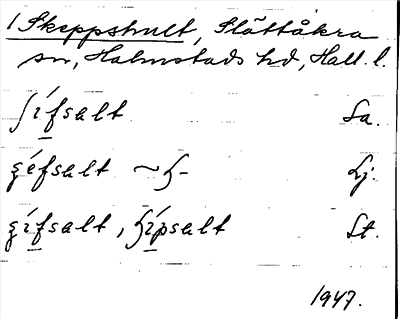 1 Skeppshult, Slättåkra
sn, Halmstads hd, Hall. l.
ʃífsalt Sa.
géfsalt ~ʃ- Lj.
gífsalt, ʃípsalt St.
1947.